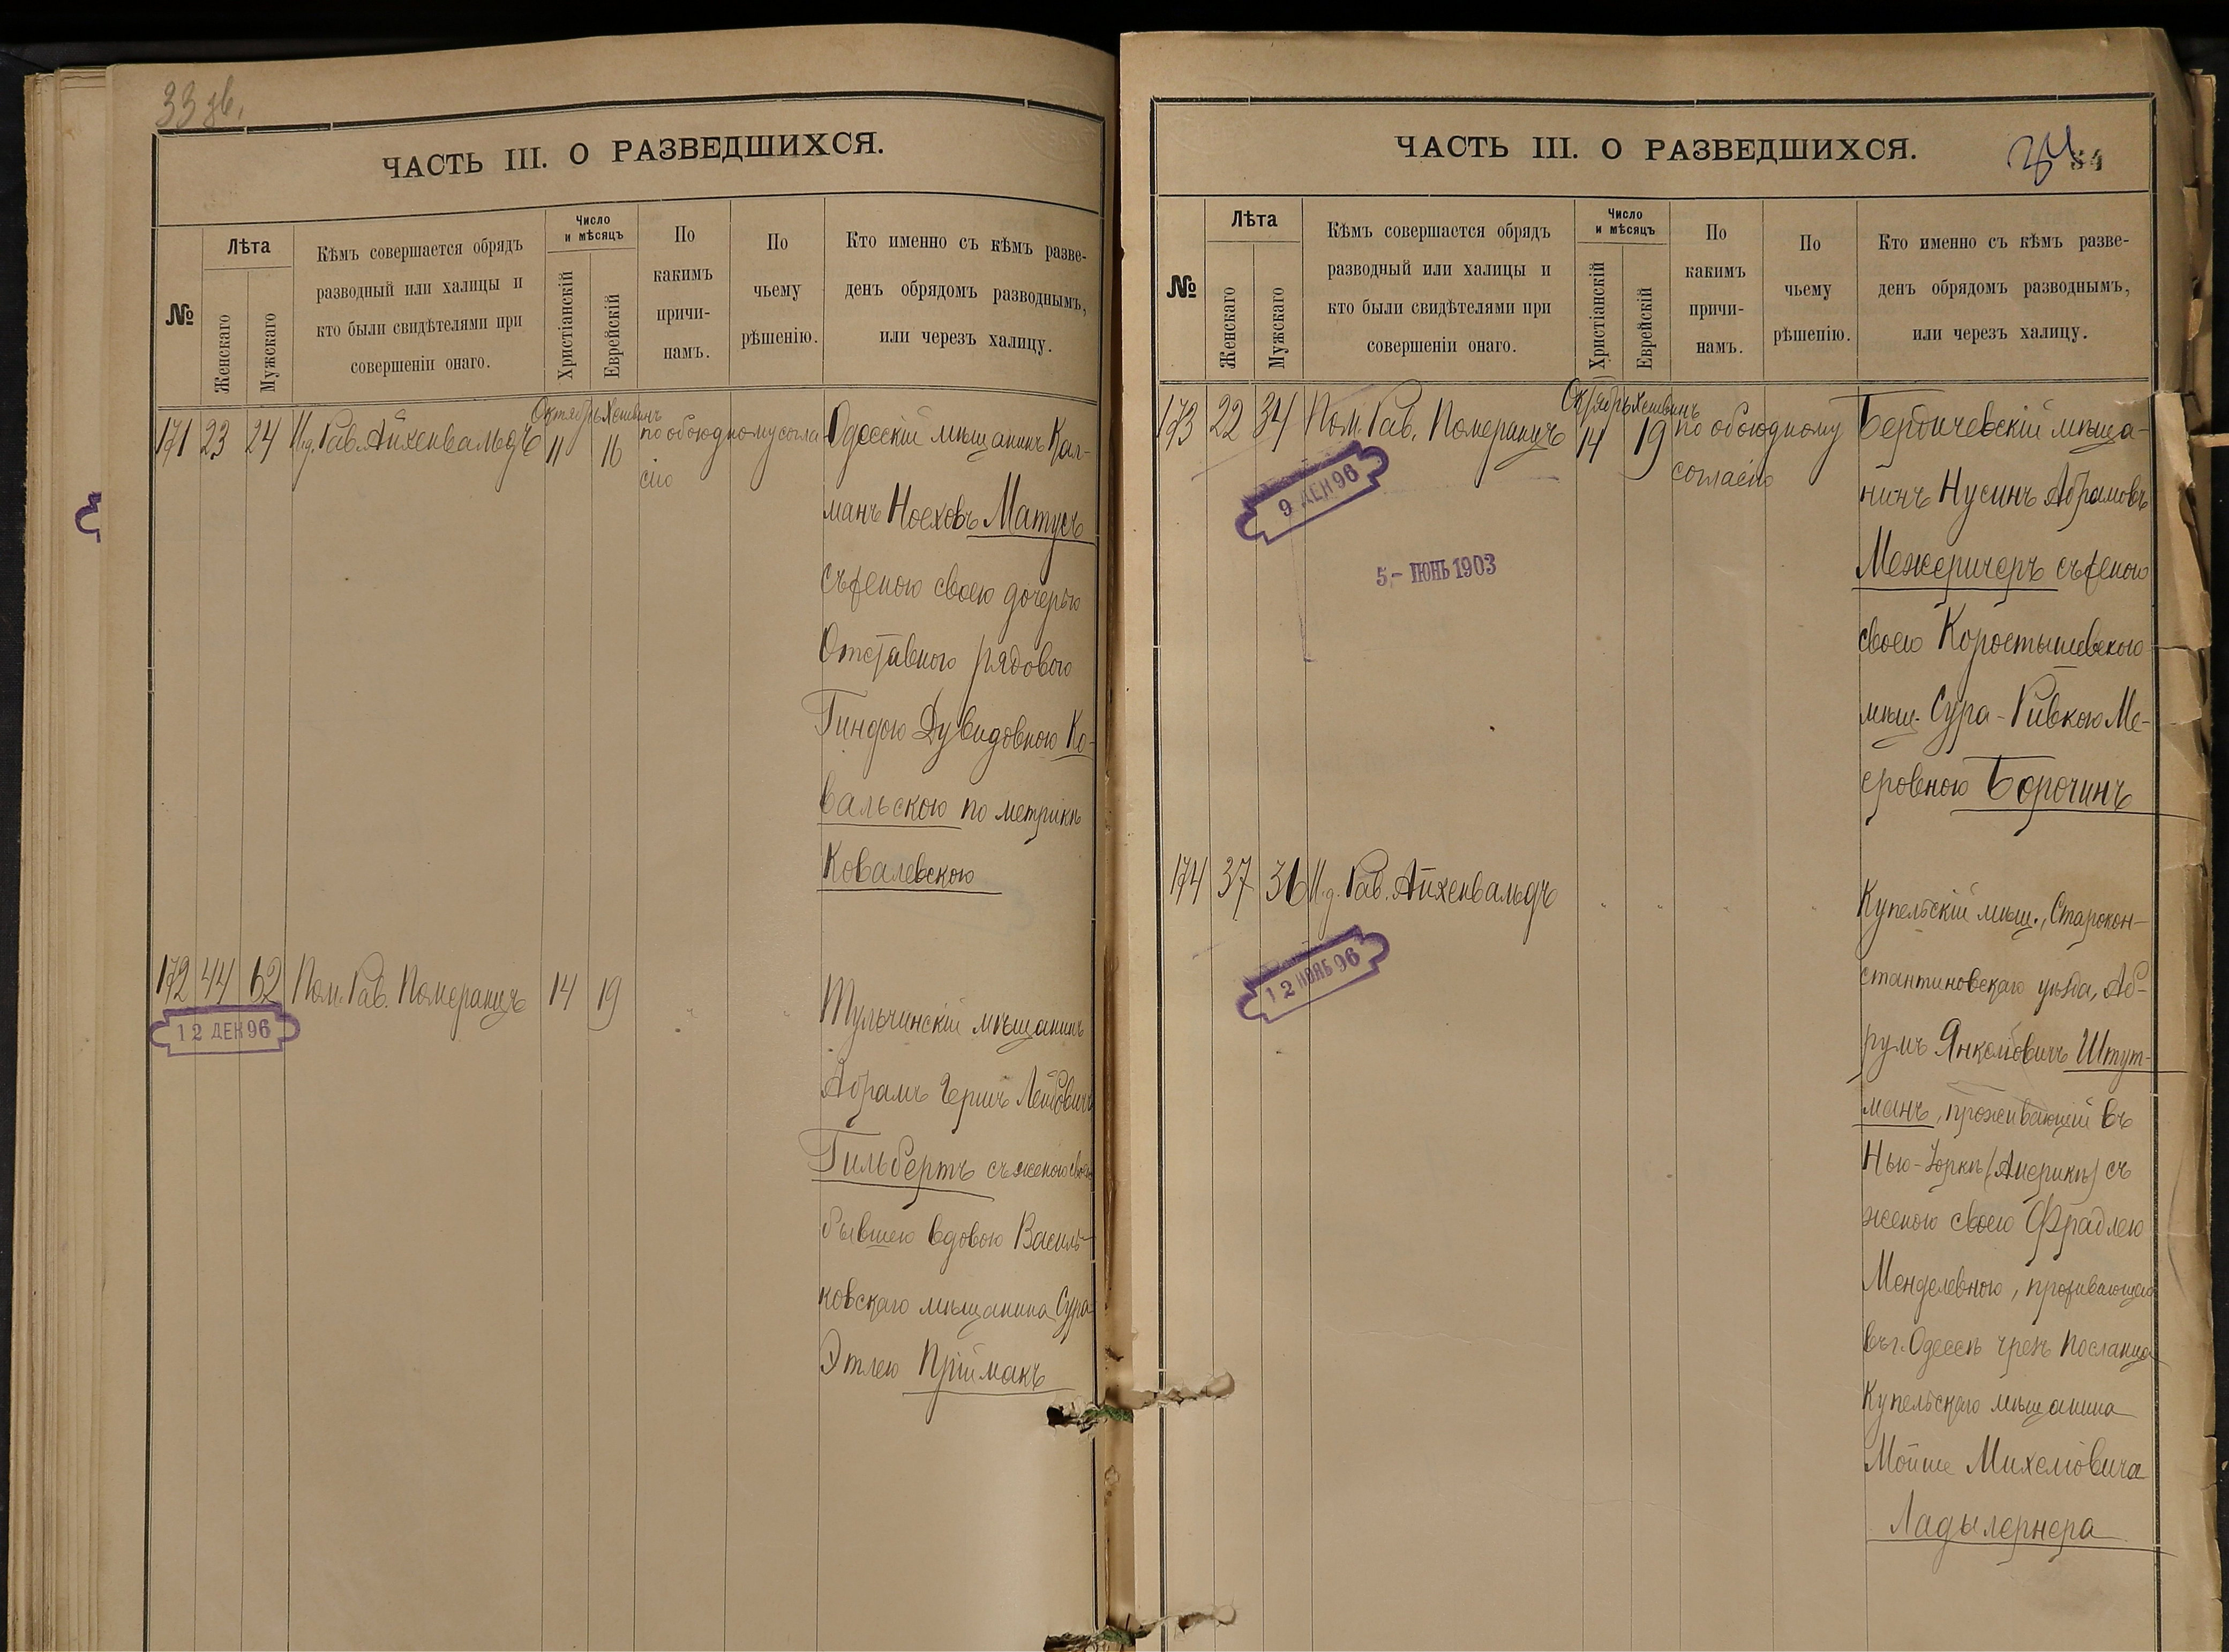 33 зв.
ЧАСТЬ III. О РАЗВЕДШИХСЯ.
№
Лѣта
Женскаго
Мужскаго
Кѣмъ совершается обрядъ
разводный или халицы и
кто были свидѣтелями при
совершеніи онаго.
Число
и мѣсяцъ
Христіанскій
Еврейскій
По
какимъ
причи-
намъ.
По
чьему
рѣшенію.
Кто именно съ кѣмъ разве-
денъ обрядомъ разводнымъ,
или черезъ халицу.
Октябрь Хешвинъ
171 23 24 И.д. Рав. Айхенвальдъ 11 16 по обоюдному согла-
сію
Одесскій мѣщанинъ Кал-
манъ Ноеховъ Матусъ
съ женою своею дочерью
Отставного рядового
Гиндою Дувидовною Ко-
вальскою по метрикѣ
Ковалевскою
172 44 62 Пом. Рав. Померанцъ 14 19 "
12 ДЕК 96
Тульчинскій мѣщанинъ
Абрамъ Гершъ Лейбовичъ
Гильбертъ съ женою своею
бывшею вдовою Василь-
ковскаго мѣщанина Сура
Этлею Пріймакъ
ЧАСТЬ III. О РАЗВЕДШИХСЯ.
34
34
№
Лѣта
Женскаго
Мужскаго
Кѣмъ совершается обрядъ
разводный или халицы и
кто были свидѣтелями при
совершеніи онаго.
Число
и мѣсяцъ
Христіанскій
Еврейскій
По
какимъ
причи-
намъ.
По
чьему
рѣшенію.
Кто именно съ кѣмъ разве-
денъ обрядомъ разводнымъ,
или черезъ халицу.
Октябрь Хешвинъ
173 22 34 Пом. Рав. Померанцъ 14 19 по обоюдному
согласію
9 ДЕК 96
5 - ІЮНЬ 1903
Бердичевскій мѣща-
нинъ Нусинъ Абрамовъ
Межеричеръ съ женою
своею Коростышевскою
мѣщ. Сура-Ривкою Ме-
еровною Борочинъ
174 37 36 И.д. Рав. Айхенвальдъ " " "
12 НОЯБ 96
Купельскій мѣщ., Старокон-
стантиновскаго уѣзда, Аб-
румъ Янкелювичъ Штут-
манъ, проживающій въ
Нью-Іоркѣ (Америкѣ) съ
женою своею Фрадлею
Менделевною, проживающею
въ г. Одессѣ чрезъ посланца
Купельскаго мѣщанина
Мойше Михелювича
Ладылернера